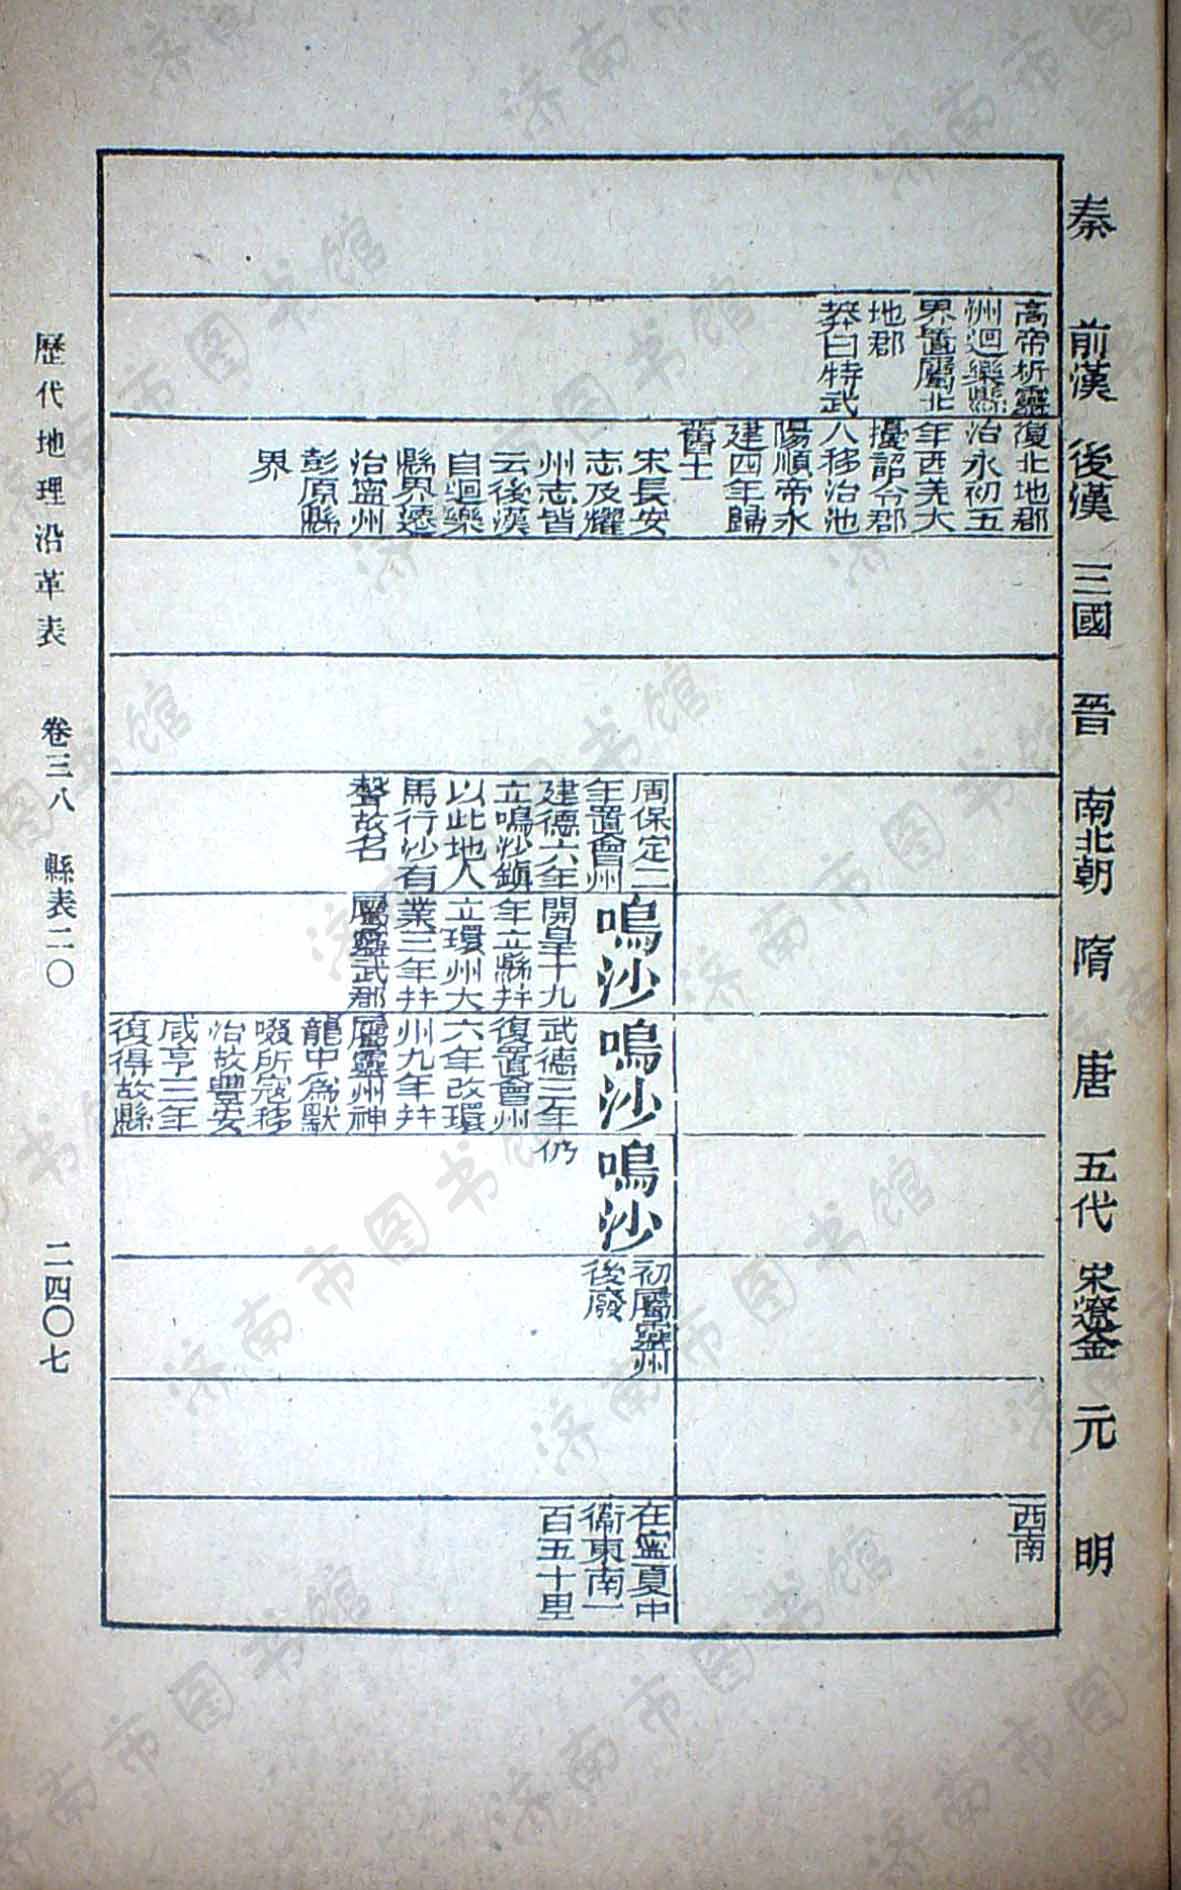 秦
前漢
後漢
三國
晉
南北朝
隋
唐
五代
宋遼金
元
明
高帝析靈
洲迴樂縣
界置屬北
地郡
莽曰特武
復北地郡
治永初五
年西羌大
擾詔令郡
人移治池
陽順帝永
建四年歸
舊土
宋長安
志及耀
州志皆
云後漢
自迴樂
縣界遷
治寧州
彭原縣
界
西南
周保定二
年置會州
建德六年
立鳴沙鎮
以此地人
馬行沙有
聲故名
鳴沙
開皇十九
年立縣并
立環州大
業三年并
屬靈武郡
鳴沙
武德三年
復置會州
六年改環
州九年并
屬靈州神
龍中為默
啜所寇移
治故豐安
咸亨三年
復得故縣
鳴沙
仍
初屬靈州
後廢
在寧夏中
衞東南一
百五十里
歷代地理沿革表 卷三八 縣表二〇 二四〇七
济南市图书馆